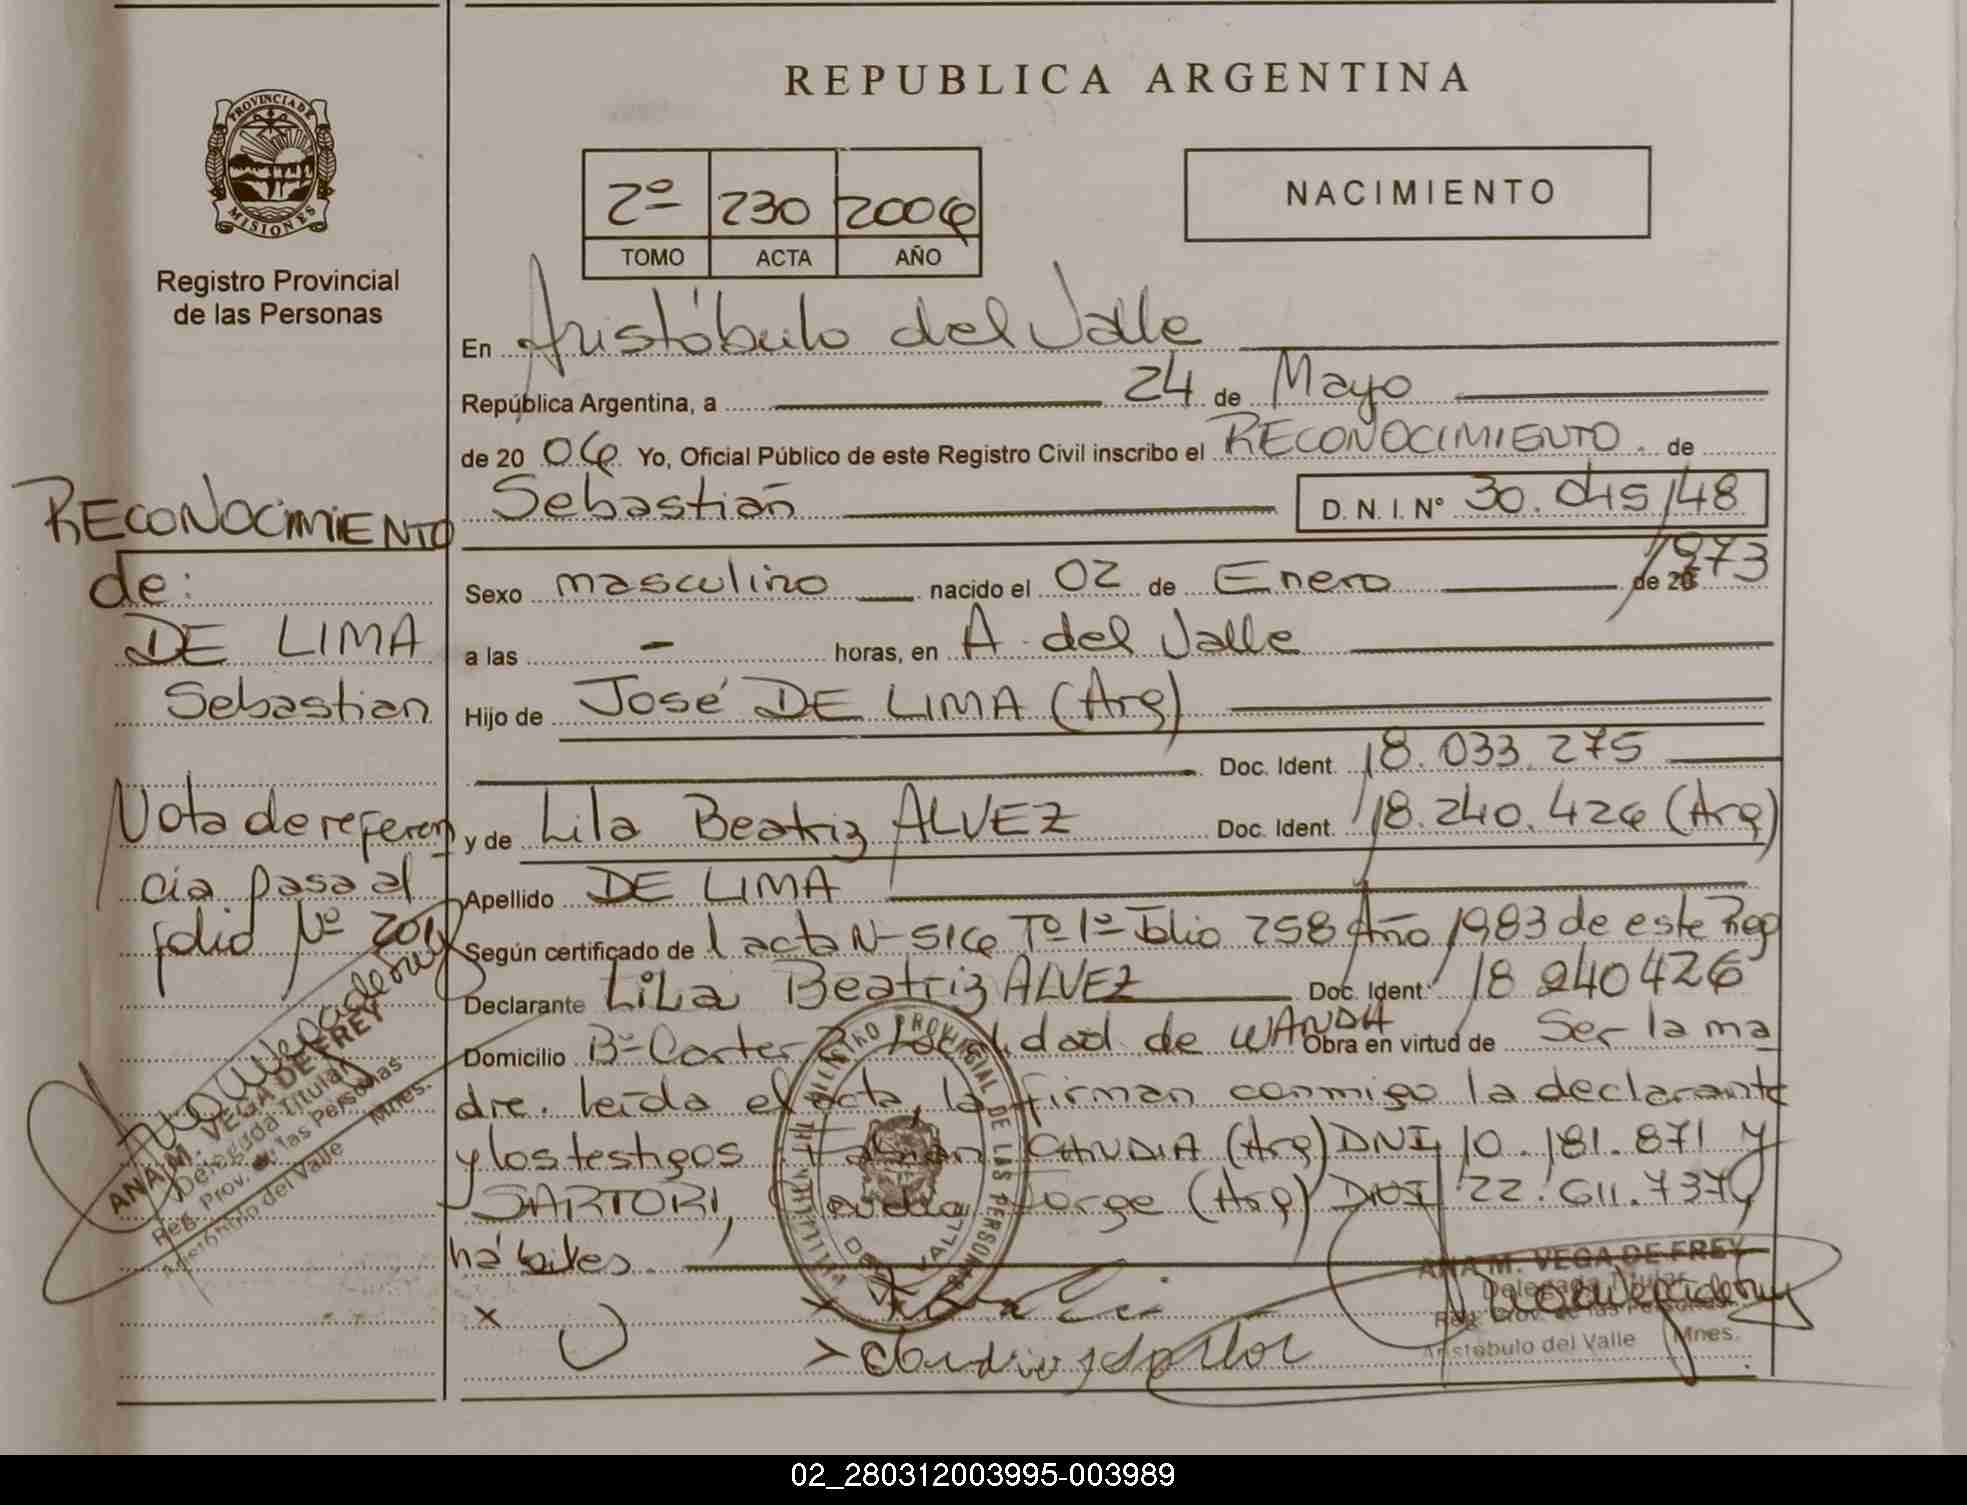 REPUBLICA ARGENTINA
PROVINCIA DE
MISIONES
Registro Provincial
de las Personas
2º 230 2006
TOMO ACTA AÑO
NACIMIENTO
En Aristóbulo del Valle
República Argentina, a 24 de Mayo
de 20 06 Yo, Oficial Público de este Registro Civil inscribo el RECONOCIMIENTO. de
Sebastián D. N. I. Nº 30.045148
Sexo masculino nacido el 02 de Enero de 20 1973
a las - horas, en A. del Valle
Hijo de José DE LIMA (Arg)
Doc. Ident. 18.033.275
y de Lila Beatriz ALVEZ Doc. Ident. 18.240.426 (Arg)
Apellido DE LIMA
Según certificado de acta Nº 516 Tº 1º folio 258 Año 1983 de este Reg
Declarante Lila Beatriz ALVEZ Doc. Ident: 18 240 426
Domicilio Bº Localidad de WANDA Obra en virtud de Ser la ma
dre. leída el acta, la firman conmigo la declarante
y los testigos CANDIA (Arg) DNI 10.181.871 y
SARTORI, Jorge (Arg) DNI 22.611.737
hábiles.
RECONOCIMIENTO
de:
DE LIMA
Sebastian
Nota de referen
cia pasa al
folio Nº
ANA M. VEGA DE FREY
Delegada Titular
Reg. Prov. de las Personas
Aristóbulo del Valle Mnes.
REGISTRO PROVINCIAL DE LAS PERSONAS
ANA M. VEGA DE FREY
Delegada Titular
Reg. Prov. de las Personas
Aristóbulo del Valle Mnes.
02_280312003995-003989